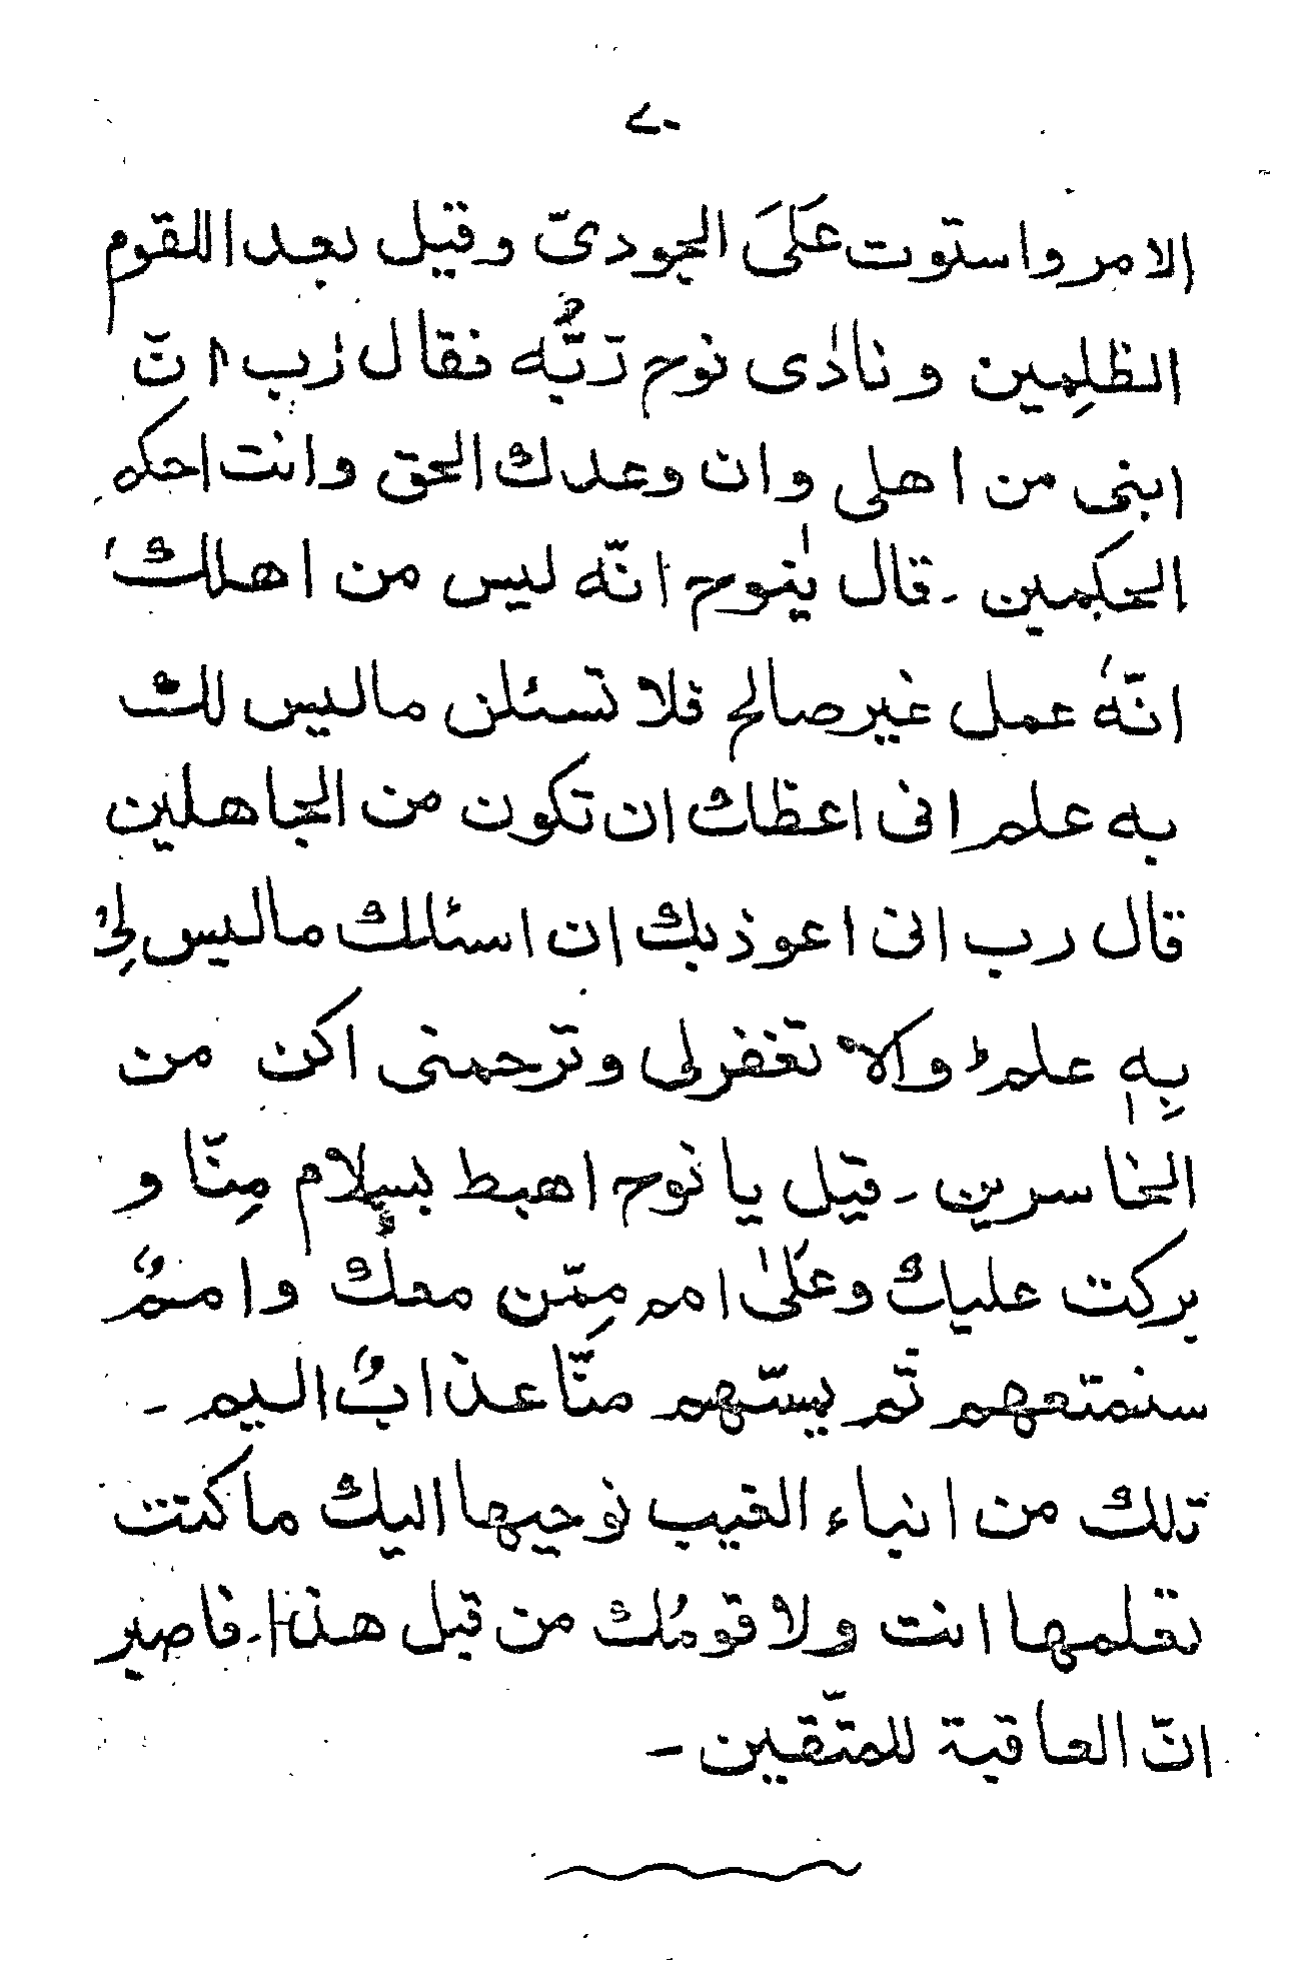 ۷۰
الامر واستوت عَلَیَ الجودیّ وقیل بعد اللقوم
الظلِمین ونادٰی نوح رَبُّه فقال رٰب انّ
ابنی من اهلی وان وعدك الحق وانت احکم
الحکمین ۔ قال یٰنوح انّه لیس من اهلك
انّهٗ عمل غیر صالح فلا تسئلن مالیس لك
به علم انی اعظك ان تکون من الجاهلین
قال رب انی اعوذبك ان اسئلك مالیس لِی
بِهٖ علمؕ والا تغفرلی وترحمنی اکن من
الخاسرین ۔ قیل یا نوح اهبط بسلام مِنّا و
برکت علیك وعَلیٰ امم مِمّن معك واممٌ
سنمتعهم ثمّ یسّهم منّا عذابٌ الیم ۔
تلك من انباء الغیب نوحیها الیك ماکنت
تعلمها انت ولا قومُك من قبل هذا ۔ فاصبر
انّ العاقبة للمتّقین ۔